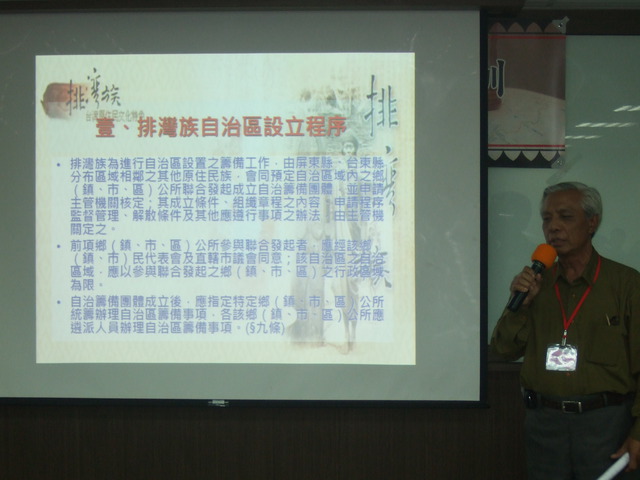 排灣族
壹、排灣族自治區設立程序
排灣
• 排灣族為進行自治區設置之籌備工作,由屏東縣、台東縣
分布區域相鄰之其他原住民族,會同預定自治區域內之鄉
(鎮、市、區)公所聯合發起成立自治籌備團體,並申請
主管機關核定;其成立條件、組織章程之內容、申請程序
監督管理、解散條件及其他應遵行事項之辦法,由主管機
關定之。
• 前項鄉(鎮、市、區)公所參與聯合發起者,應經該鄉
(鎮、市)民代表會及直轄市議會同意;該自治區之自治
區域,應以參與聯合發起之鄉(鎮、市、區)之行政區域
為限。
• 自治籌備團體成立後,應指定特定鄉(鎮、市、區)公所
統籌辦理自治區籌備事項,各該鄉(鎮、市、區)公所應
遴派人員辦理自治區籌備事項。(§九條)
訓